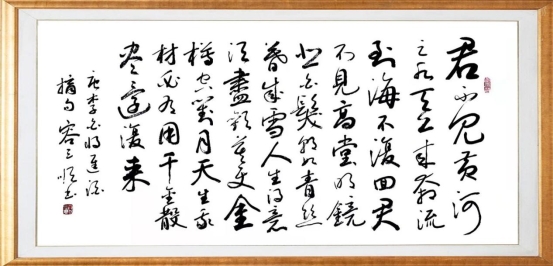 君不见黄河
之水天上来奔流
到海不復回君
不見高堂明鏡
悲白髮朝如青絲
暮成雪人生得意
須盡歡莫使金
樽空對月天生我
材必有用千金散
尽還復来
唐李白将進酒
摘句